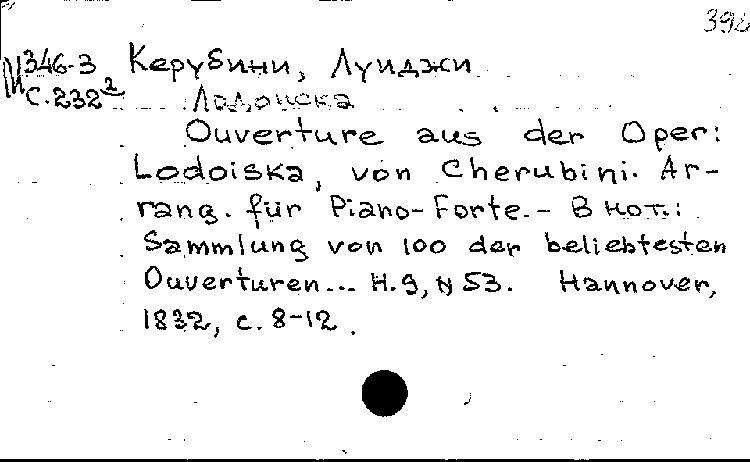 М346-3 Керубини, Луиджи
С.232² Лодоиска
Ouverture aus der Oper:
Lodoiska, von Cherubini. Ar-
rang. für Piano-Forte.- В нот.:
Sammlung von 100 der beliebtesten
Ouverturen... H.9, N 53. Hannover,
1832, с. 8-12.